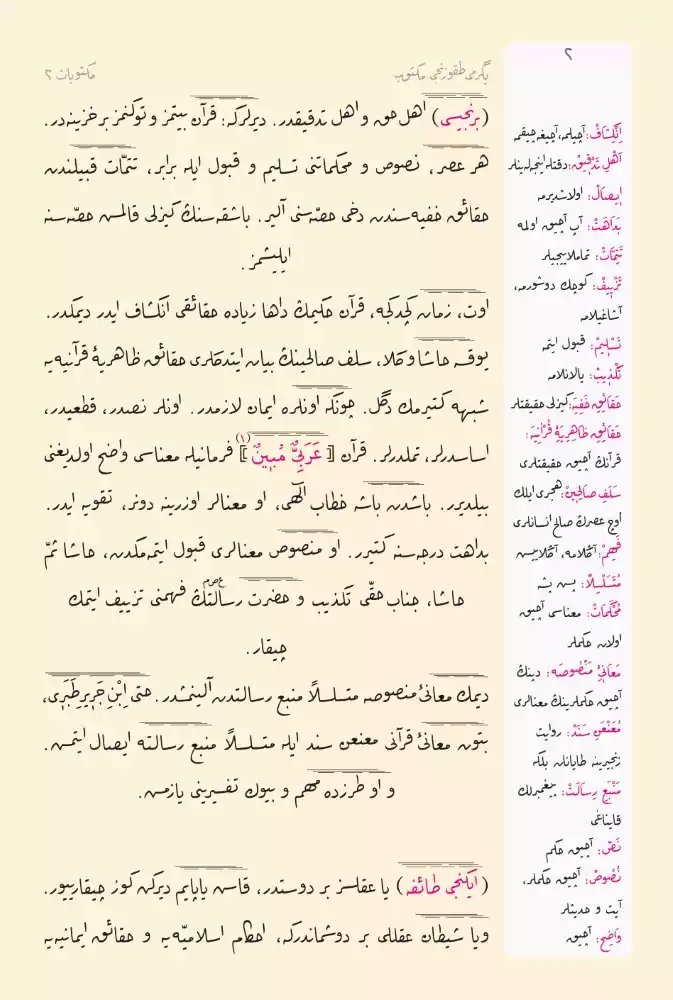 ٢
مكتوبات ٢
يگرمى طقوزنجى مكتوب
(برنجيسى) اهل حق و اهل تدقيقدر. ديرلركه: قرآن بيتمز و توكنمز بر خزينه‌در.
هر عصر، نصوص و محكماتنى تسليم و قبول ايله برابر، تتمّات قبيلندن
حقائق خفيه‌سندن دخى حصّه‌سنى آلير. باشقه‌سنڭ كيزلى قالمش حصّه‌سنه
ايليشمز.
اوت، زمان كچدكجه، قرآن حكيمڭ داها زياده حقائقى انكشاف ايدر ديمكدر.
يوقسه حاشا وكلا، سلف صالحينڭ بيان ايتدكلرى حقائق ظاهريهٔ قرآنيه‌يه
شبهه كتيرمك دگل. چونكه اونلره ايمان لازمدر. اونلر نصدر، قطعيدر،
اساسدرلر، تملدرلر. قرآن ﴿عَرَبِيٌّ مُبِينٌ﴾(١) فرمانيله معناسى واضح اولديغنى
بيلديرر. باشدن باشه خطاب الٓهى، او معنالر اوزرينه دونر، تقويه ايدر.
بداهت درجه‌سنه كتيرر. او منصوص معنالرى قبول ايتمه‌مكدن، حاشا ثمّ
حاشا، جناب حقّى تكذيب و حضرت رسالتڭ فهمنى تزييف ايتمك
چيقار.
ديمك معانئ منصوصه متسلسلًا منبع رسالتدن آلينمشدر. حتى اِبْنِ جَرِيرِ طَبَرِى،
بتون معانئ قرآنى معنعن سند ايله متسلسلًا منبع رسالته ايصال ايتمش.
و او طرزده مهم و بيوك تفسيرينى يازمش.
(ايكنجى طائفه) يا عقلسز بر دوستدر، قاش ياپايم ديركن كوز چيقارييور.
ويا شيطان عقللى بر دوشماندركه، احكام اسلاميّه‌يه و حقائق ايمانيه‌يه
اِنْكِشَافْ: آچيلمه، آچيغه چيقمه
اَهْلِ تَدْقِيقْ: دقتله اينجه‌له‌ينلر
اِيصَالْ: اولاشديرمه
بَدَاهَتْ: آپ آچيق اولمه
تَتِمَّاتْ: تماملاييجيلر
تَزْيِيفْ: كوچك دوشورمه،
آشاغيلامه
تَسْلِيمْ: قبول ايتمه
تَكْذِيبْ: يالانلامه
حَقَائِقِ خَفِيَه: كيزلى حقيقتلر
حَقَائِقِ ظَاهِرِيَۀِ قُرْاٰنِيَه:
قرآنڭ آچيق حقيقتلرى
سَلَفِ صَالِحِينْ: هجرى ايلك
اوچ عصرڭ صالح انسانلرى
فَهِمْ: آڭلامه، آڭلاييش
مُتَسَلْسِلًا: پش پشه
مُحْكَمَاتْ: معناسى آچيق
اولان حكملر
مَعَانِئِ مَنْصُوصَه: دينڭ
آچيق حكملرينڭ معنالرى
مُعَنْعَنِ سَنَدْ: روايت
زنجيرينه طايانان بلگه
مَنْبَعِ رِسَالَتْ: پيغمبرلك
قايناغى
نَصّ: آچيق حكم
نُصُوصْ: آچيق حكملر،
آيت و حديثلر
وَاضِحْ: آچيق